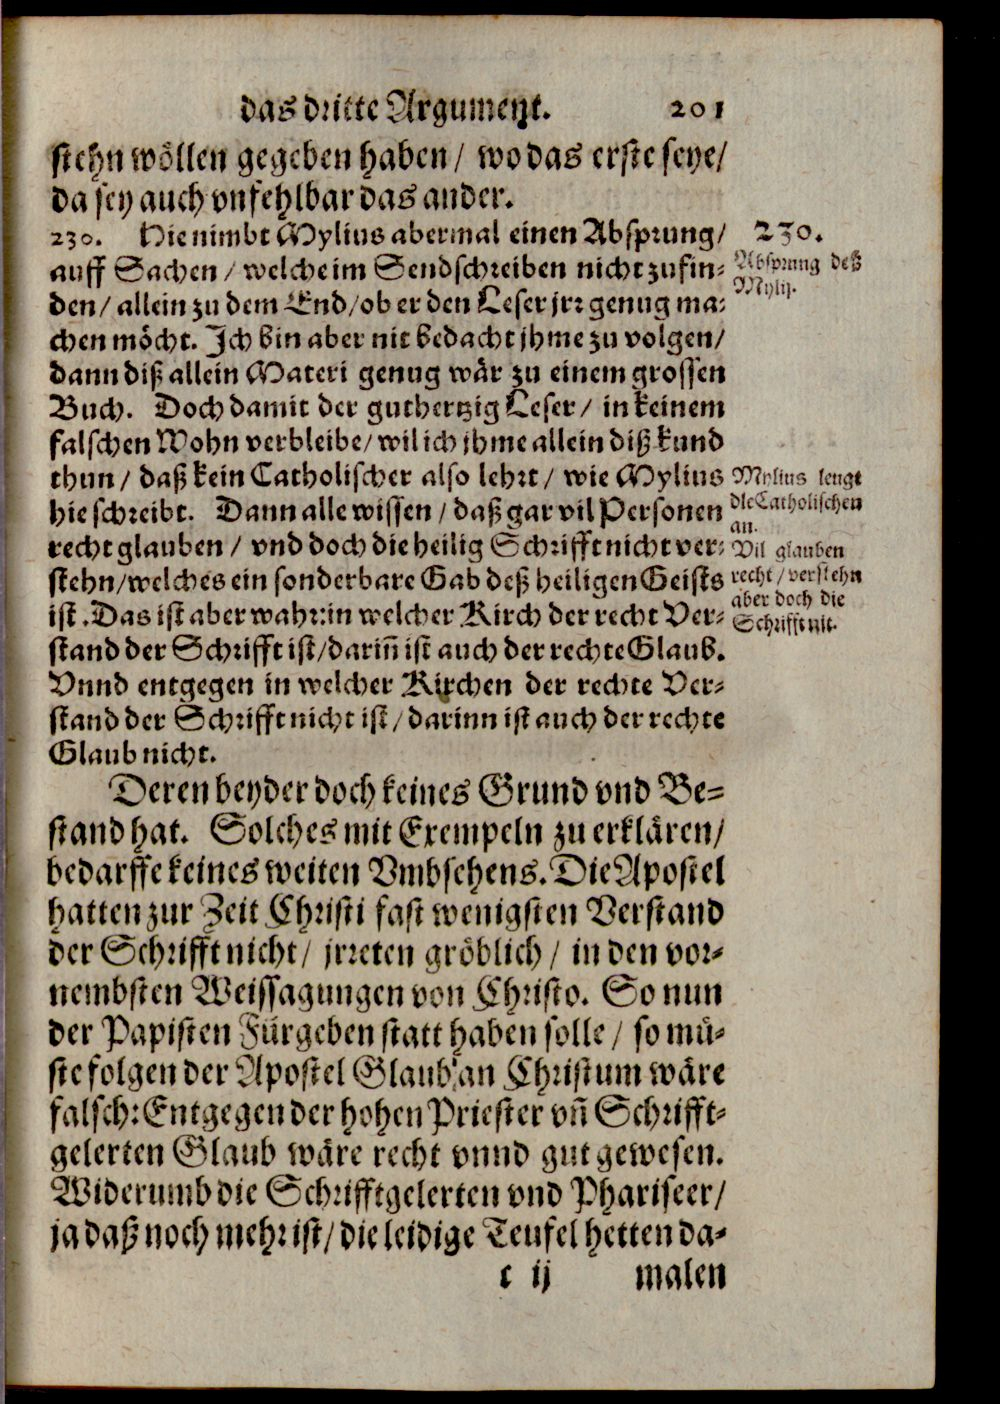 das dritte Argument. 201
stehn wöllen gegeben haben / wo das erste seye /
da sey auch vnfehlbar das ander.
230. Hie nimbt Mylius abermal einen Absprung /
auff Sachen / welche im Sendschreiben nicht zu fin-
den / allein zu dem End / ob er den Leser jrr genug ma-
chen möcht. Ich bin aber nit bedacht jhme zu volgen /
dann diß allein Materi genug wär zu einem grossen
Buch. Doch damit der guthertzig Leser / in keinem
falschen Wohn verbleibe / wil ich jhme allein diß kund
thun / daß kein Catholischer also lehrt / wie Mylius
hie schreibt. Dann alle wissen / daß gar vil Personen
recht glauben / vnd doch die heilig Schrifft nicht ver-
stehn / welches ein sonderbare Gab deß heiligen Geists
ist. Das ist aber wahr: in welcher Kirch der recht Ver-
stand der Schrifft ist / dariñ ist auch der rechte Glaub.
Vnnd entgegen in welcher Kirchen der rechte Ver-
stand der Schrifft nicht ist / darinn ist auch der rechte
Glaub nicht.
230.
Absprung deß
Mylij.
Mylius leugt
die Catholischen
an.
Vil glauben
recht / verstehn
aber doch die
Schrifft nit.
Deren beyder doch keines Grund vnd Be-
stand hat. Solches mit Exempeln zu erklären /
bedarffe keines weiten Vmbsehens. Die Apostel
hatten zur Zeit Christi fast wenigsten Verstand
der Schrifft nicht / jrreten gröblich / in den vor-
nembsten Weissagungen von Christo. So nun
der Papisten Fürgeben statt haben solle / so mü-
ste folgen der Apostel Glaub an Christum wäre
falsch: Entgegen der hohen Priester vñ Schrifft-
gelerten Glaub wäre recht vnnd gut gewesen.
Widerumb die Schrifftgelerten vnd Phariseer /
ja daß noch mehr ist / die leidige Teufel hetten da-
c ij malen